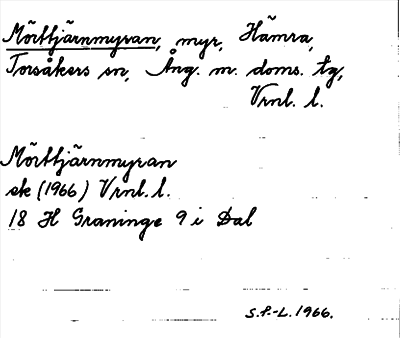 Mörttjärnmyran, myr, Hämra,
Torsåkers sn, Ång. m. doms. tg,
Vrnl. l.
Mörttjärnmyran
ek (1966) Vrnl. l.
18 H Graninge 9 i Dal
S.P.-L. 1966.